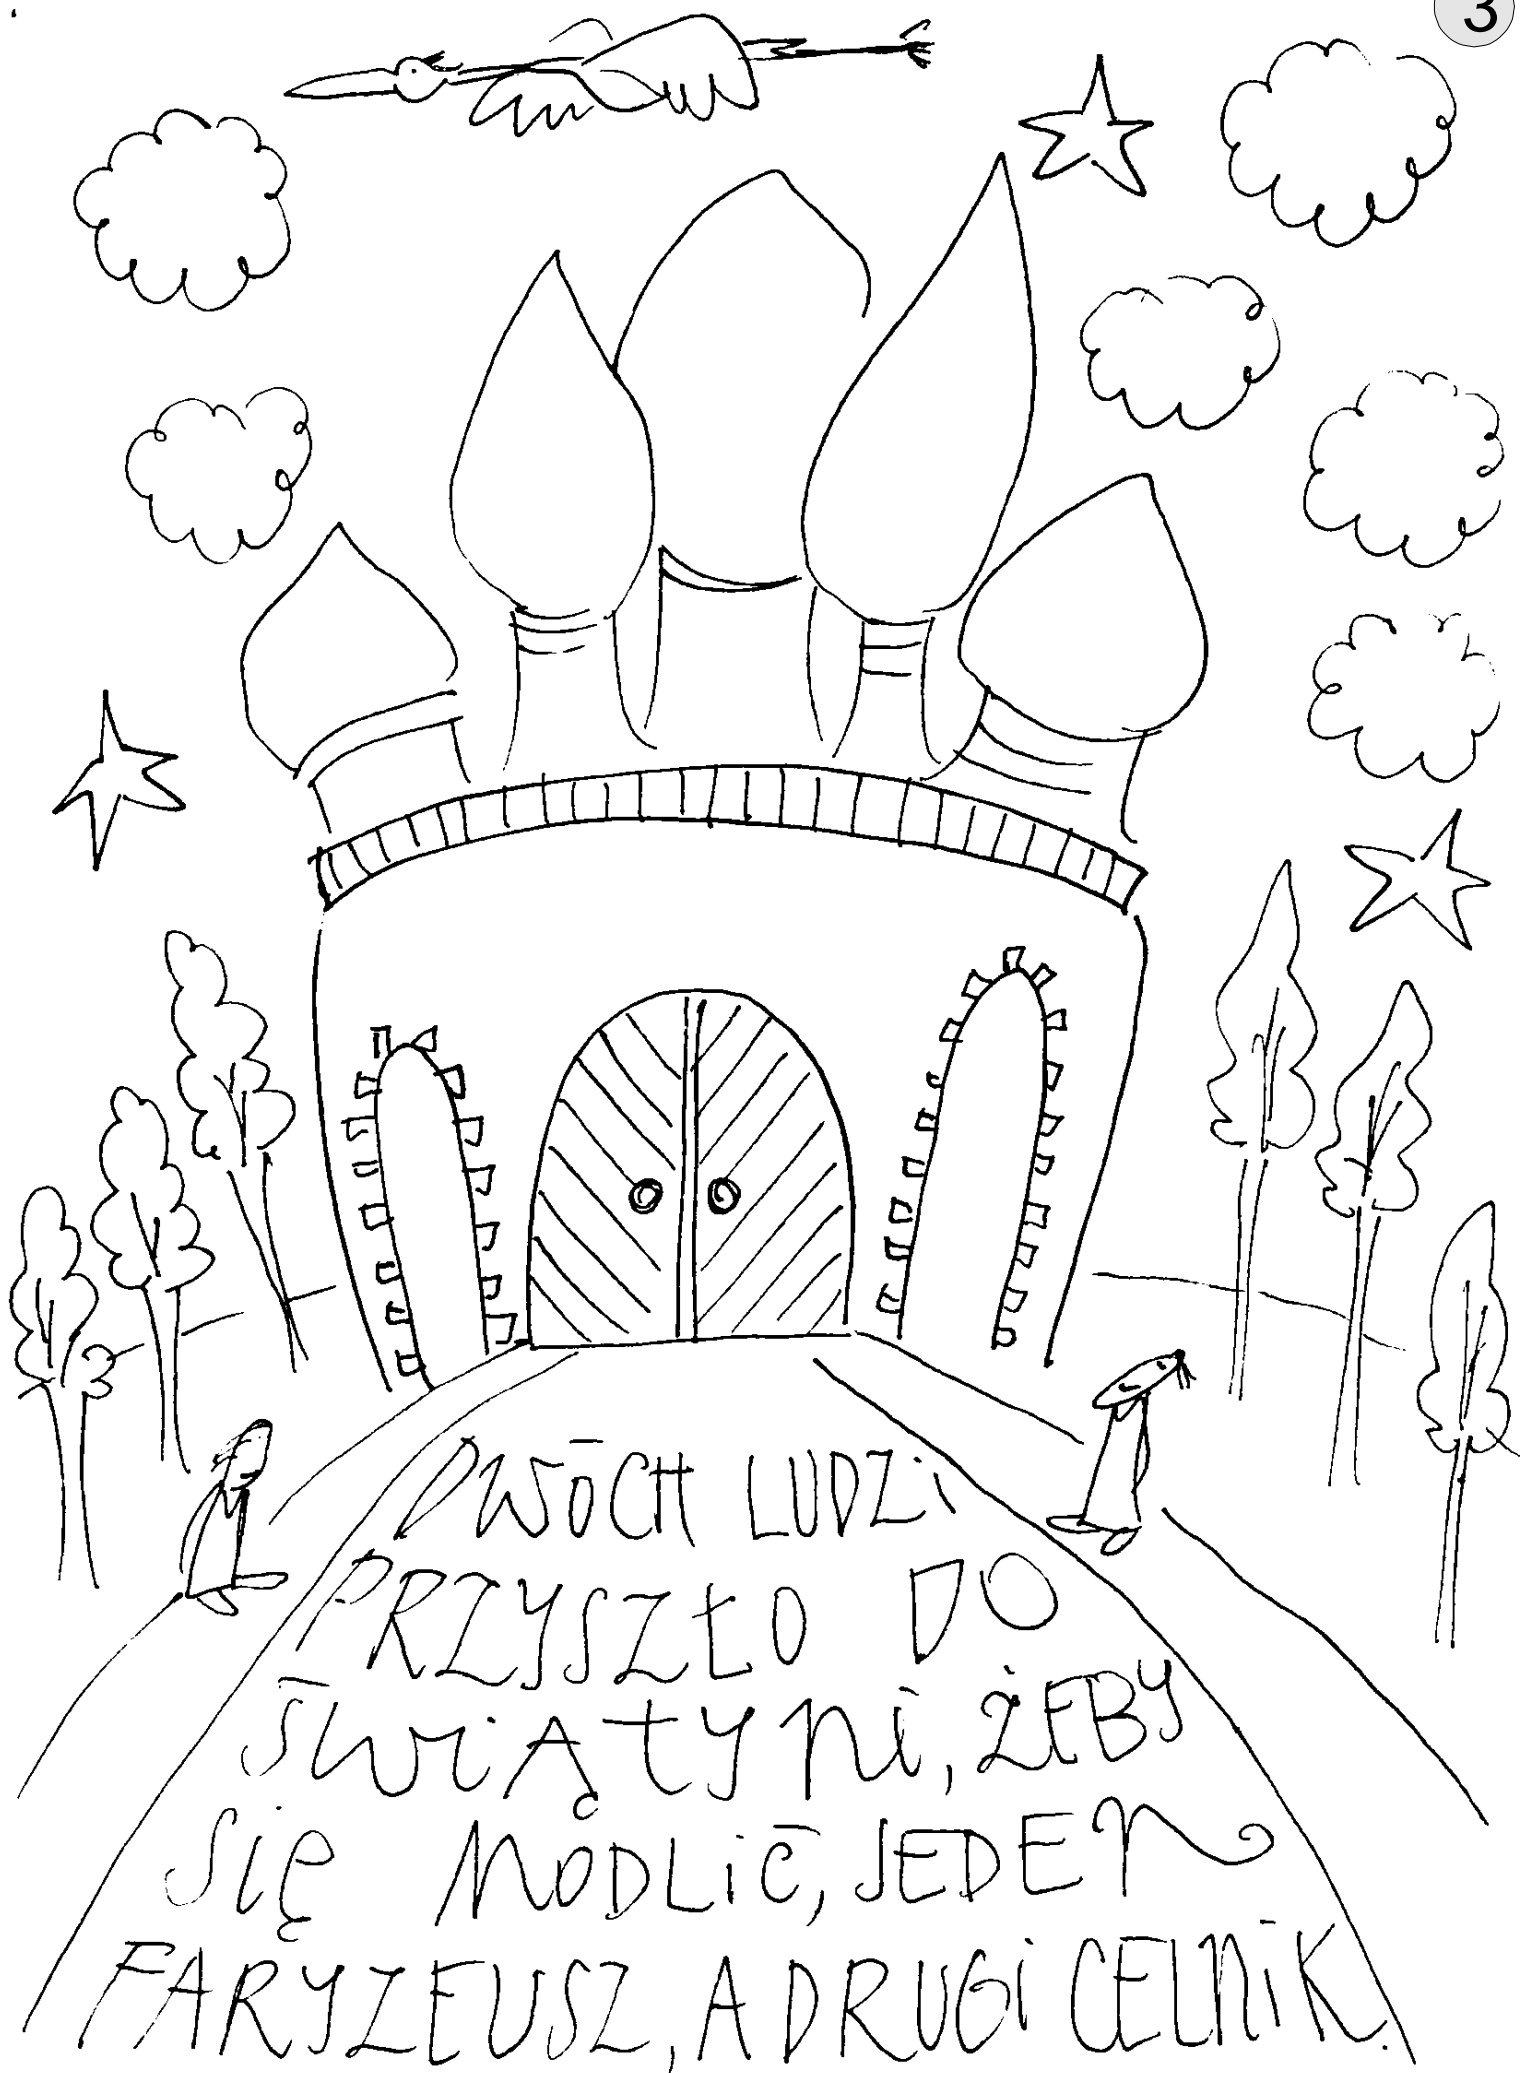 3
DWÓCH LUDZi
PRZYSZŁO DO
ŚWiĄTYNi, ŻEBY
SiĘ MODLiĆ, JEDEN
FARYZEUSZ, A DRUGi CELNiK.